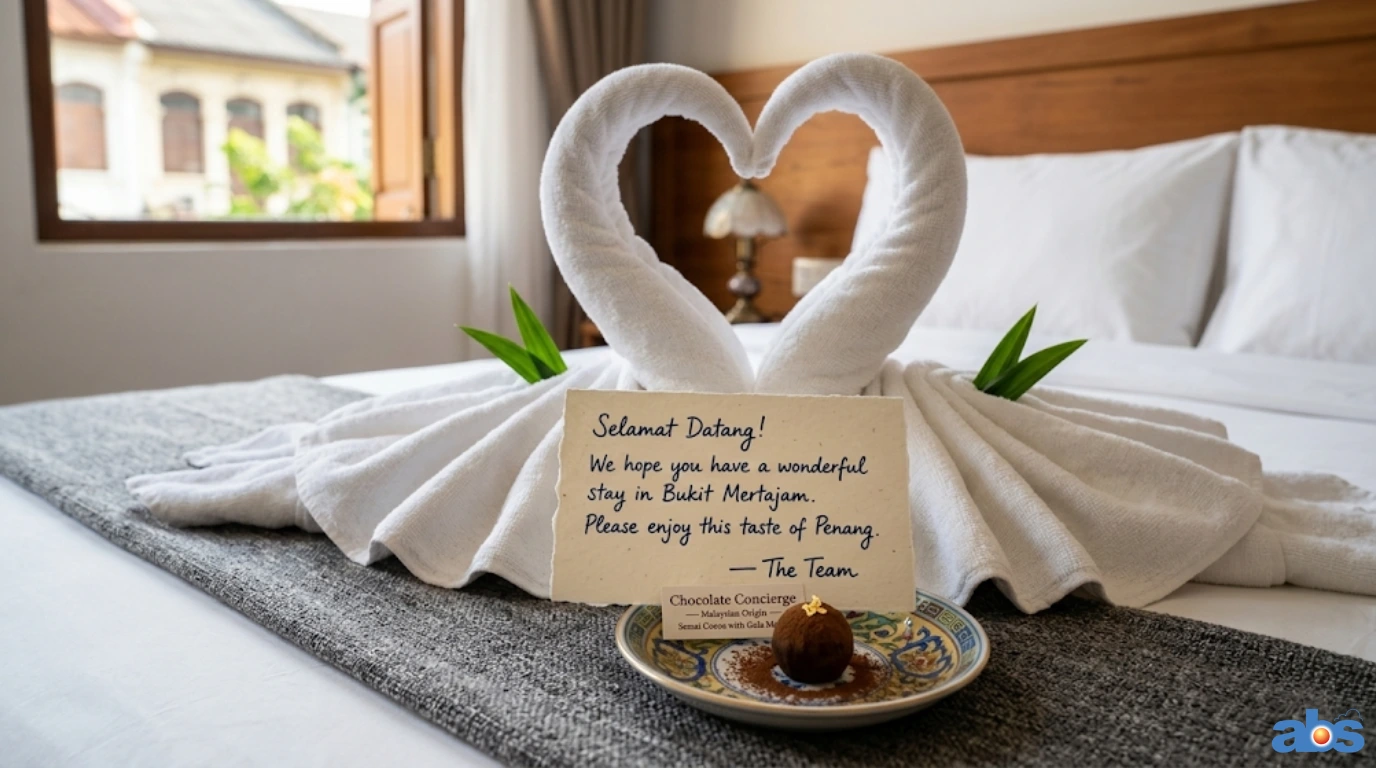 Selamat Datang!
We hope you have a wonderful
stay in Bukit Mertajam.
Please enjoy this taste of Penang.
— The Team
Chocolate Concierge
— Malaysian Origin —
Semai Cocoa with Gula
abs